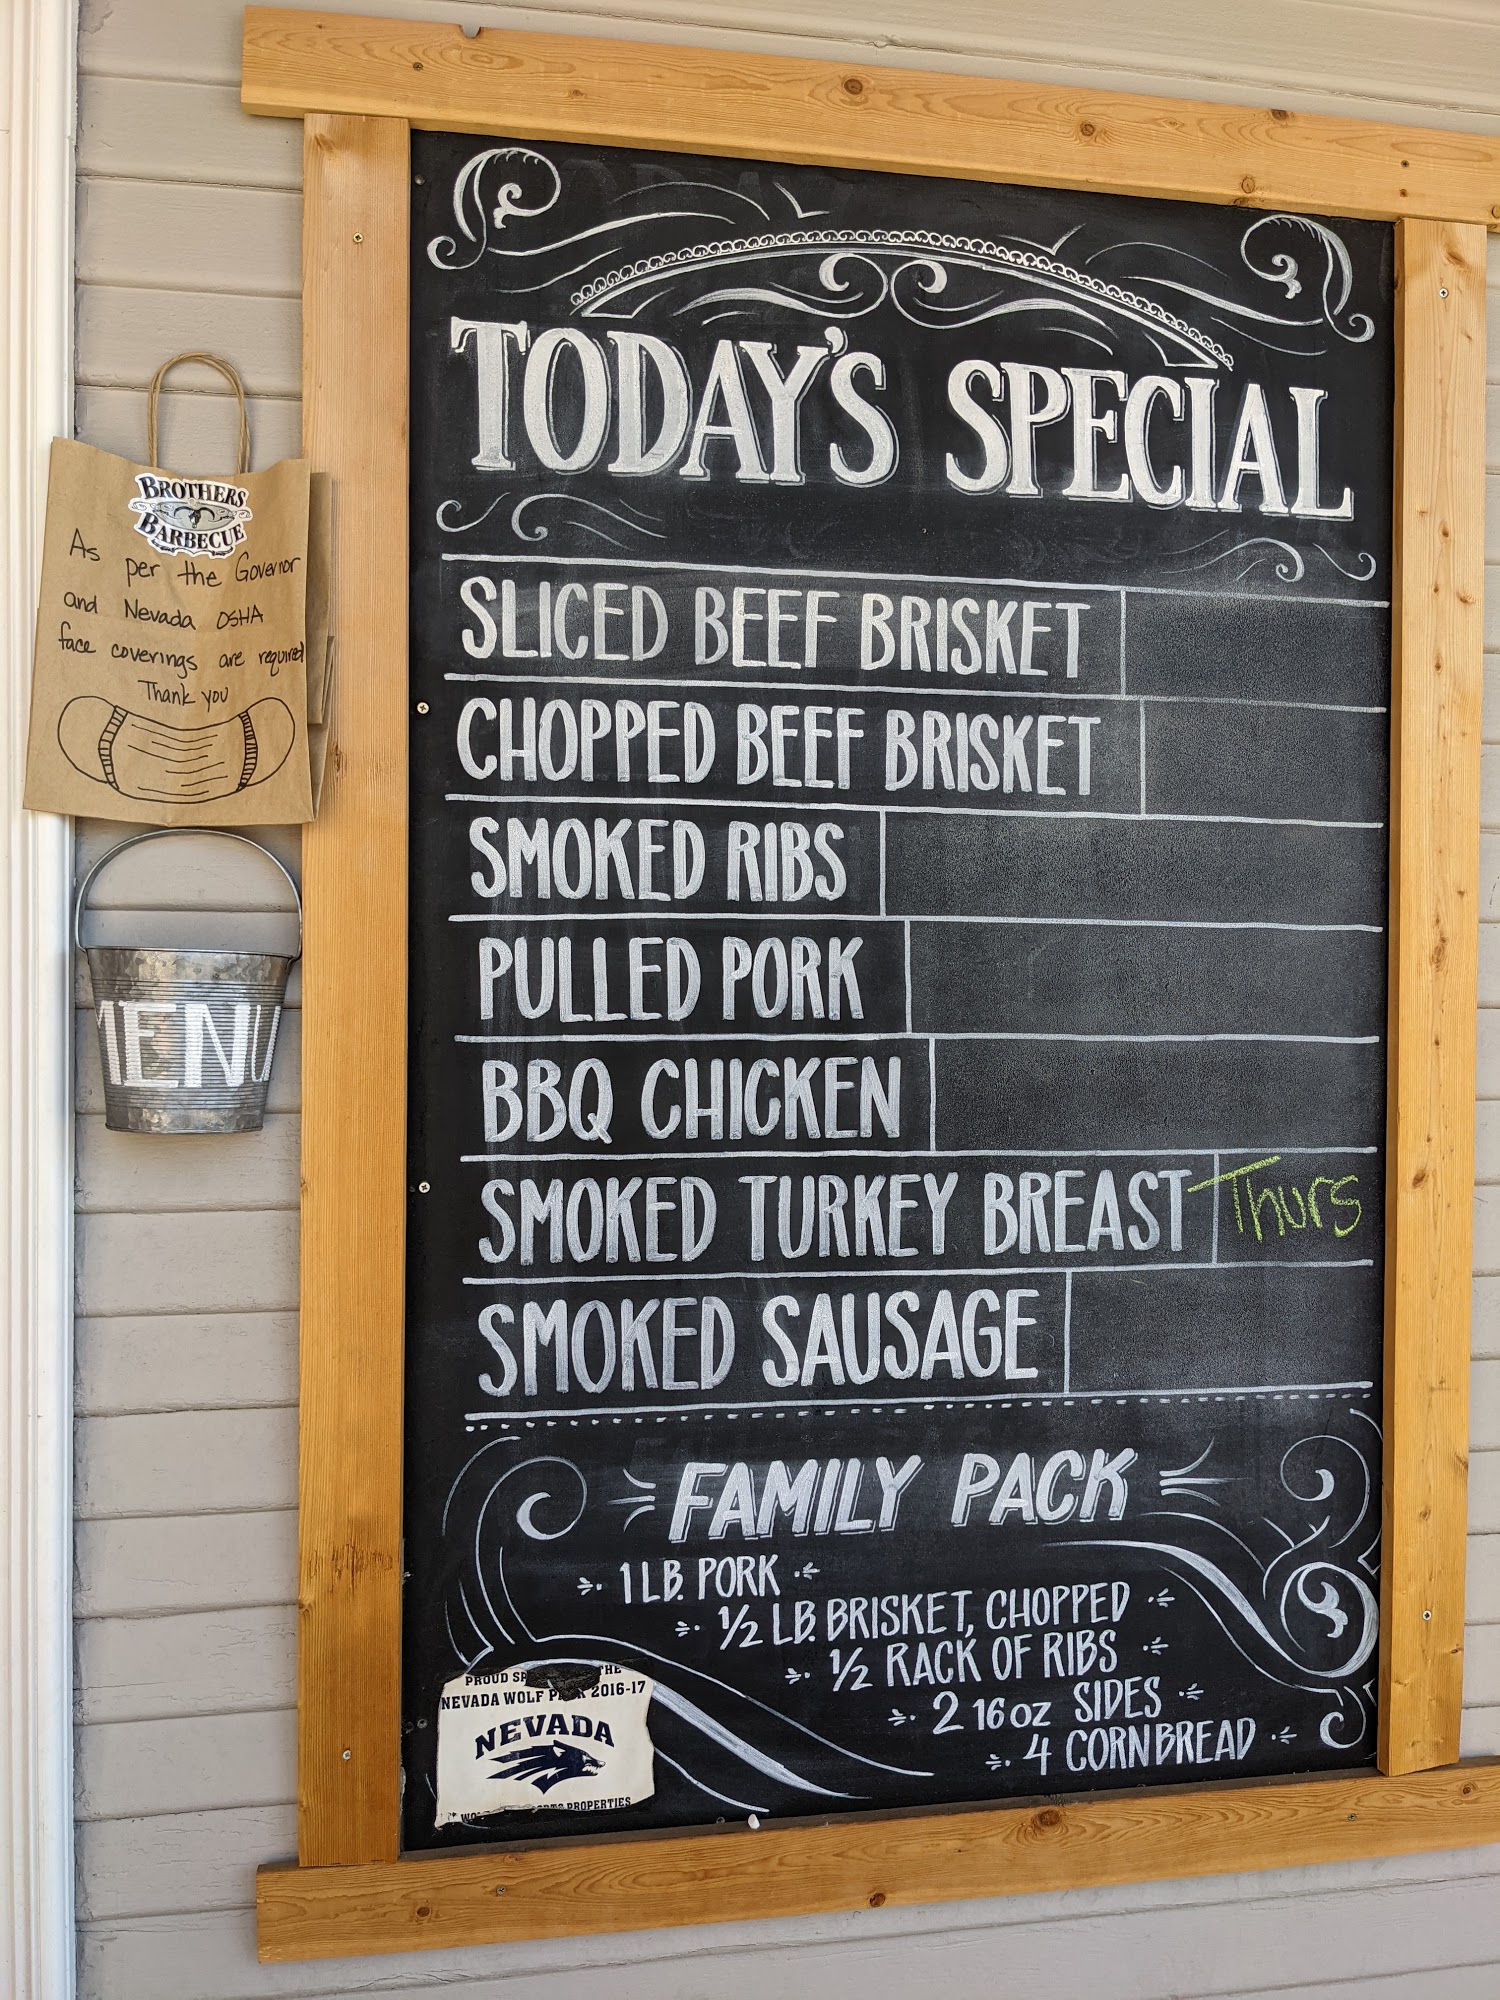 BROTHERS
BARBECUE
As per the Governor
and Nevada OSHA
face coverings are required
Thank you
MENU
TODAY'S SPECIAL
SLICED BEEF BRISKET
CHOPPED BEEF BRISKET
SMOKED RIBS
PULLED PORK
BBQ CHICKEN
SMOKED TURKEY BREAST Thurs
SMOKED SAUSAGE
FAMILY PACK
1 LB. PORK
1/2 LB. BRISKET, CHOPPED
1/2 RACK OF RIBS
2 16 oz SIDES
4 CORNBREAD
PROUD THE
NEVADA WOLF PACK 2016-17
NEVADA
PROPERTIES